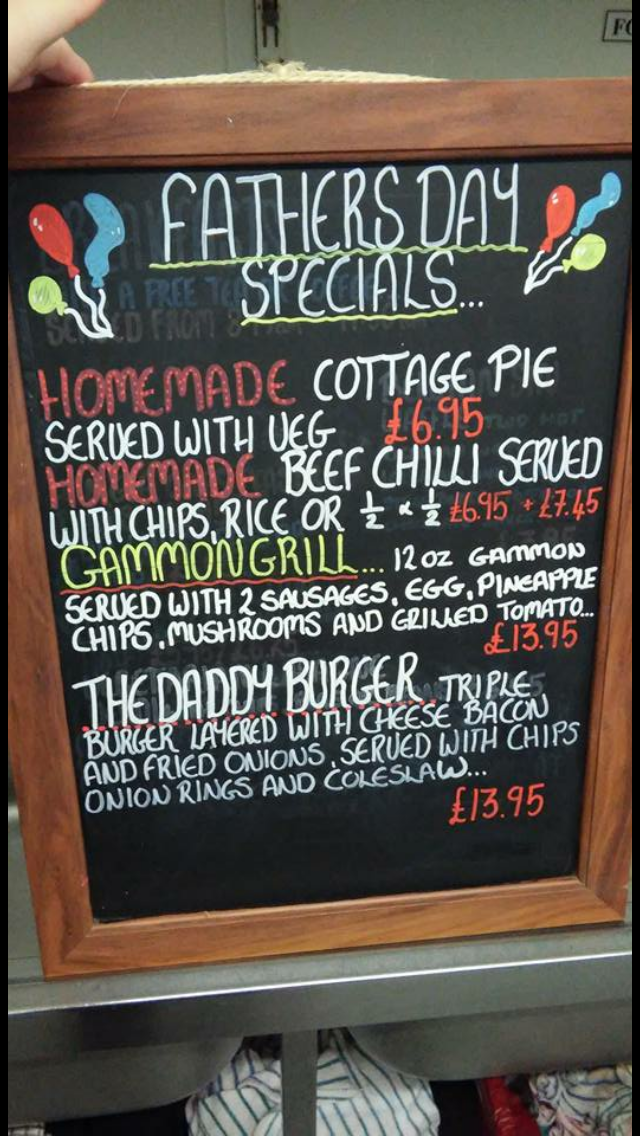 FATHERS DAY
SPECIALS...
HOMEMADE COTTAGE PIE
SERVED WITH VEG £6.95
HOMEMADE BEEF CHILLI SERVED
WITH CHIPS, RICE OR ½ & ½ £6.95 + £7.45
GAMMON GRILL... 12 OZ GAMMON
SERVED WITH 2 SAUSAGES, EGG, PINEAPPLE
CHIPS, MUSHROOMS AND GRILLED TOMATO...
£13.95
THE DADDY BURGER TRIPLE
BURGER LAYERED WITH CHEESE BACON
AND FRIED ONIONS, SERVED WITH CHIPS
ONION RINGS AND COLESLAW...
£13.95